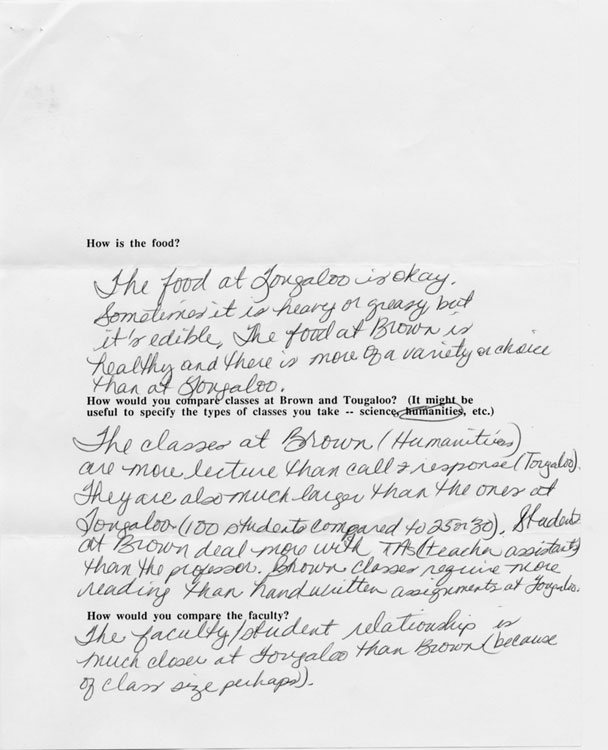 How is the food?
The food at Tougaloo is okay.
Sometimes it is heavy or greasy but
it's edible. The food at Brown is
healthy and there is more of a variety or choice
than at Tougaloo.
How would you compare classes at Brown and Tougaloo? (It might be
useful to specify the types of classes you take -- science, humanities, etc.)
The classes at Brown (Humanities)
are more lecture than call & response (Tougaloo).
They are also much larger than the ones at
Tougaloo (100 students compared to 25 or 30). Students
at Brown deal more with TAs (teacher assistants)
than the professor. Brown classes require more
reading than handwritten assignments at Tougaloo.
How would you compare the faculty?
The faculty/student relationship is
much closer at Tougaloo than Brown (because
of class size perhaps).